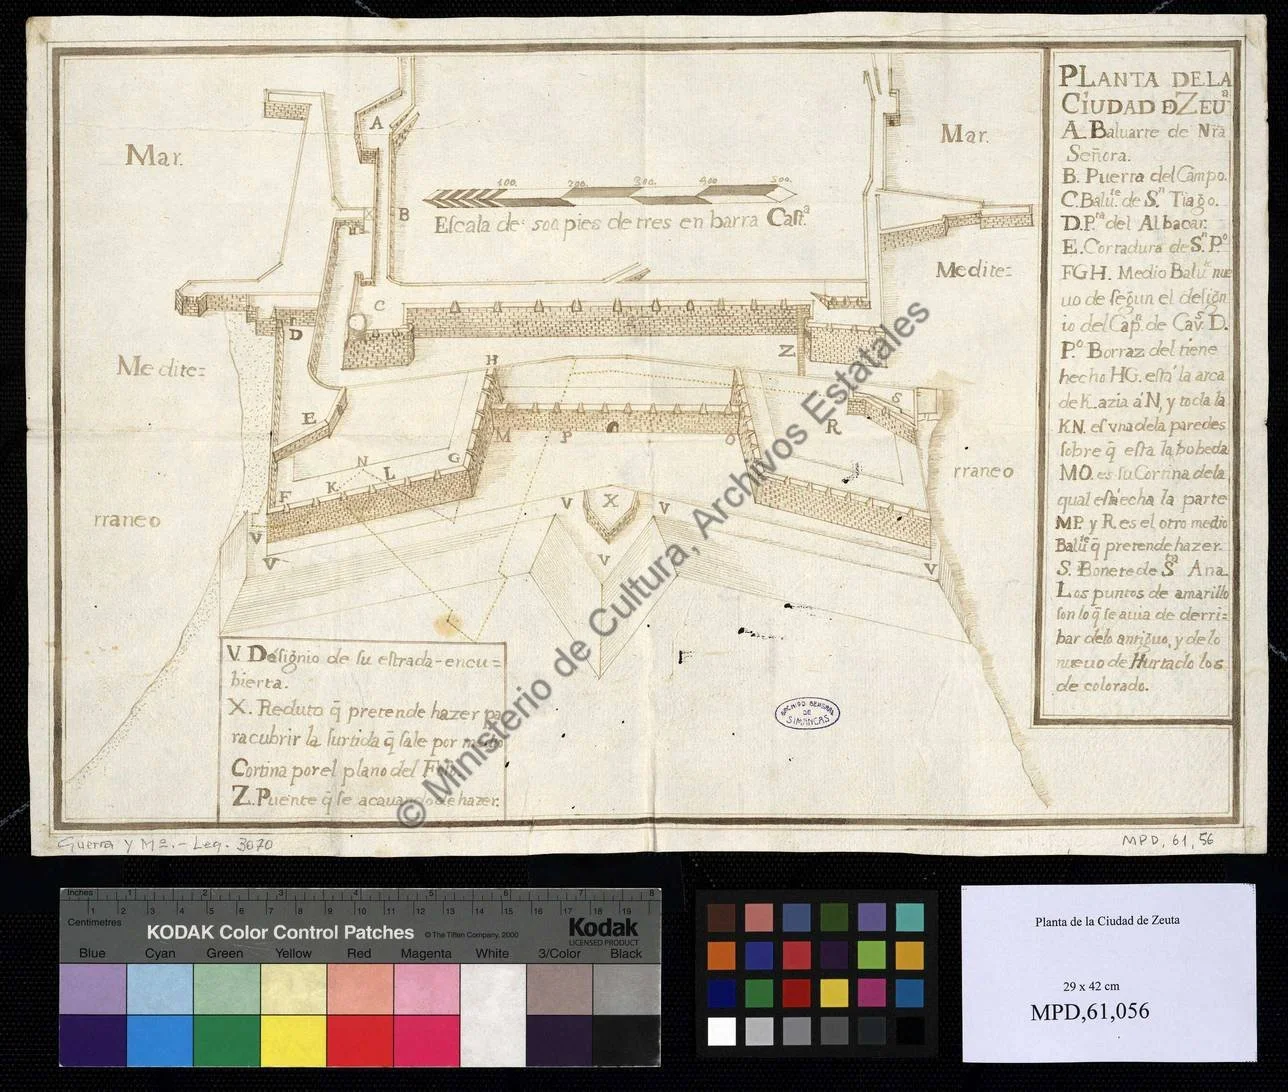 PLANTA DE LA
CIUDAD D ZEUª
A. Baluarte de Nrâ
Señora.
B. Puerta del Campo.
C. Baluᵗᵉ. de Sⁿ Tiago.
D. Pᵗᵃ del Albacar.
E. Cortadura de Sⁿ. Pº.
FGH. Medio Baluᵗᵉ nue
uo de segun el design
io del Capⁿ. de Cavˢ. D.
Pº. Borraz del tiene
hecho HG. está la arca
de K azia á N, y toda la
KN. es vna de la paredes
sobre q̃ esta la bobeda
MO. es su Cortina de la
qual está echa la parte
MP. y R es el otro medio
Baluᵗᵉ q̃ pretende hazer.
S. Bonete de Sᵗᵃ Ana
Los puntos de amarillo
son lo q̃ se auia de derri=
bar délo antiguo, y de lo
nueuo de Hurtado los
de colorado.
Mar.
Medite=
rraneo
Mar.
Medite=
rraneo
100. 200. 300. 400 500.
Escala de 500 pies de tres en barra Castª.
A
B
C
D
Z
H
E
S
M P O R
N
G
L
K
F
V X V
V
V V V
V. Designio de su estrada-encu=
bierta.
X. Reduto q̃ pretende hazer pa
ra cubrir la surtida q̃ sale por medio
Cortina por el plano del
Z. Puente q̃ se acauando de hazer.
ARCHIVO GENERAL
DE
SIMANCAS
© Ministerio de Cultura, Archivos Estatales
Guerra y Mª. - Leg. 3070
MPD, 61, 56
Inches 1 2 3 4 5 6 7 8
Centimetres 1 2 3 4 5 6 7 8 9 10 11 12 13 14 15 16 17 18 19
KODAK Color Control Patches © The Tiffen Company, 2000
Kodak
LICENSED PRODUCT
Blue Cyan Green Yellow Red Magenta White 3/Color Black
Planta de la Ciudad de Zeuta
29 x 42 cm
MPD,61,056